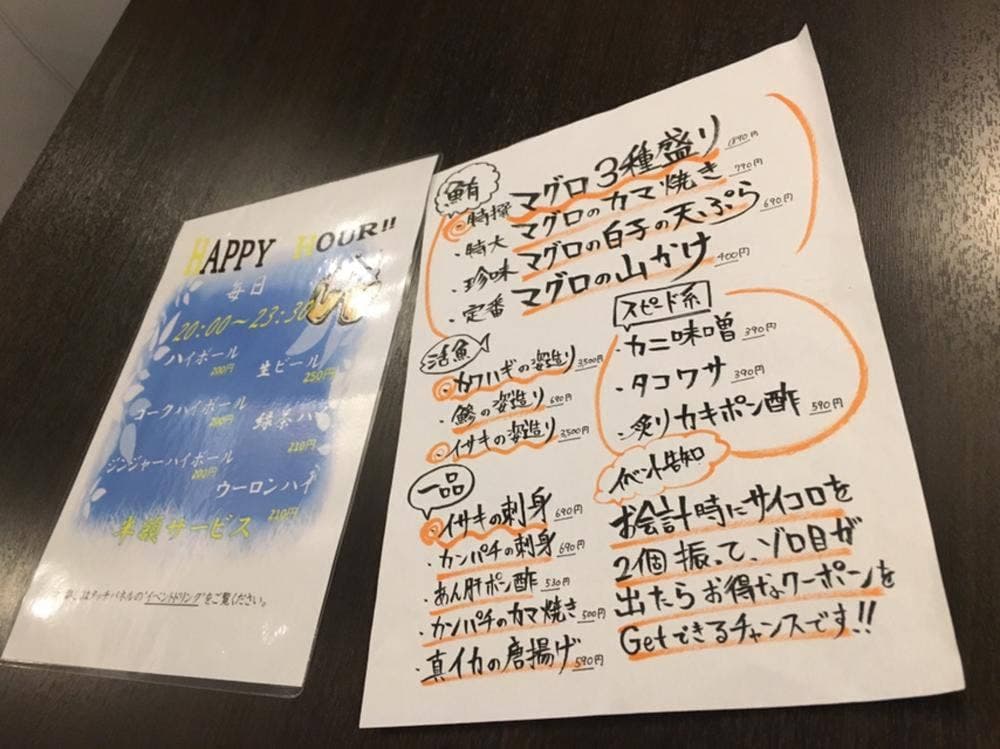 HAPPY HOUR!!
毎日
20:00～23:30
ハイボール
200円
生ビール
250円
コークハイボール
200円
緑茶ハイ
210円
ジンジャーハイボール
200円
ウーロンハイ
210円
半額サービス
はタッチパネルの"イベントドリンク"をご覧ください。
鮪
・特撰 マグロ3種盛り 1890円
・特大 マグロのカマ焼き 790円
・珍味 マグロの白子の天ぷら 690円
・定番 マグロの山かけ 400円
活魚
・カワハギの姿造り 3,500円
・鯵の姿造り 690円
・イサキの姿造り 3,500円
一品
・イサキの刺身 690円
・カンパチの刺身 690円
・あん肝ポン酢 530円
・カンパチのカマ焼き 500円
・真イカの唐揚げ 590円
スピード系
・カニ味噌 390円
・タコワサ 390円
・炙りカキポン酢 590円
イベント告知
お会計時にサイコロを
2個振って、ゾロ目が
出たらお得なクーポンを
Getできるチャンスです!!